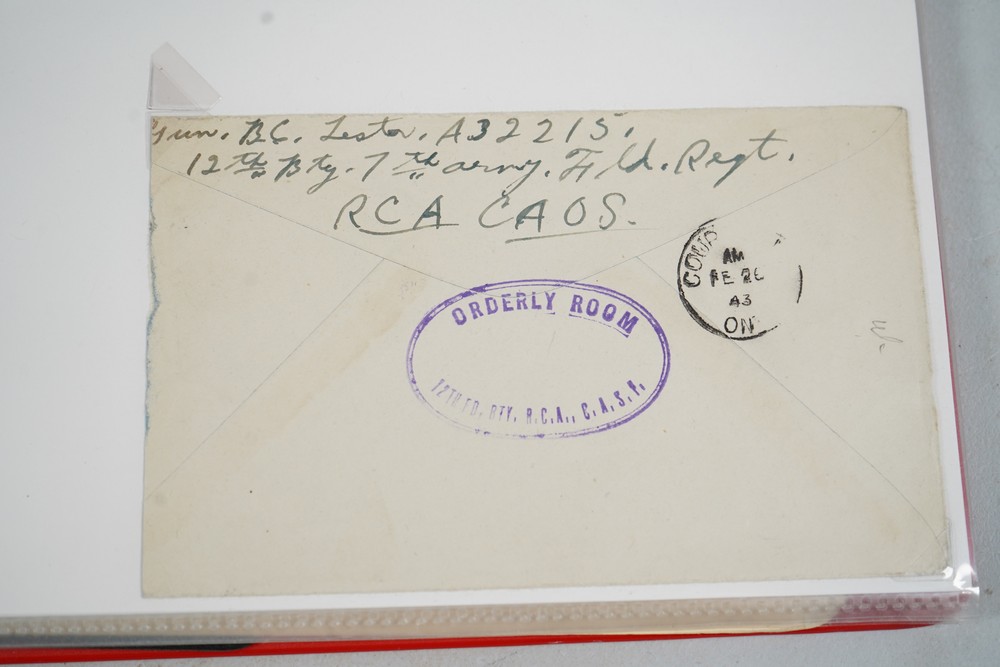 Gun. B.C. Lester. A32215.
12th Bty. 7th army. Fld. Regt.
RCA CAOS.
ORDERLY ROOM
12TH FD. BTY. R.C.A., C.A.S.F.
AM
FE 26
43
ON